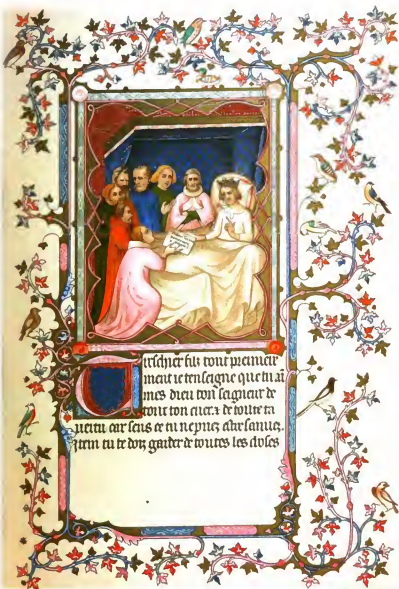 irschier filz tout premieir
ment ie tenseigne que tu ai
mes dieu ton seigneur de
tout ton cuer. & de toute ta
uertu car sens ce tu ne puez estre sauuez.
Item tu te doiz garder de toutes les choses